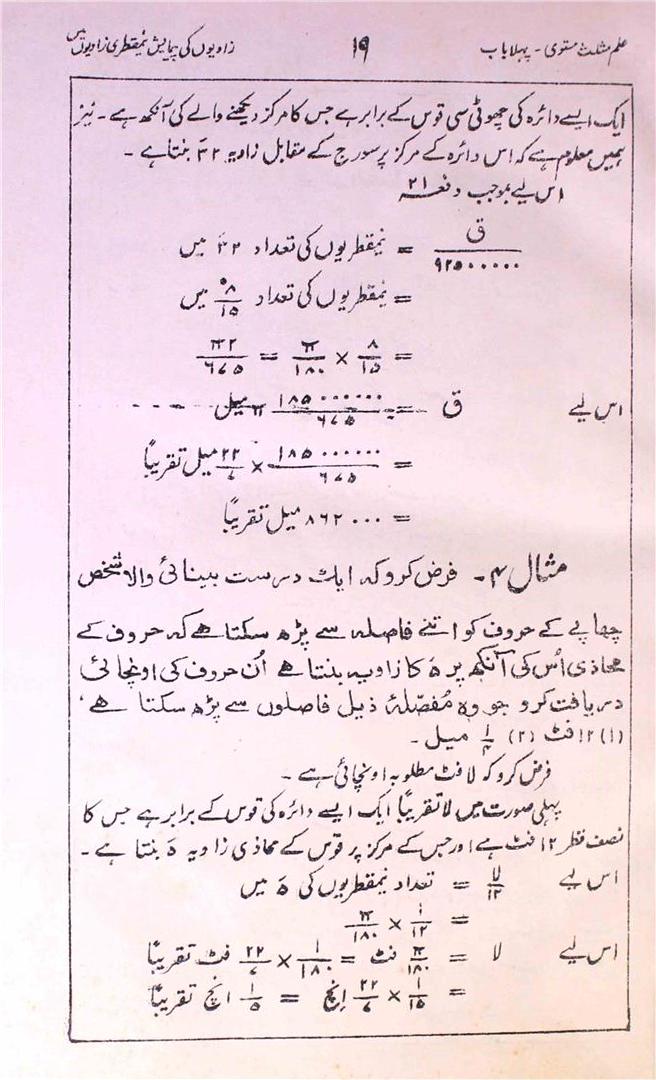 علم مثلث مستوی - پہلا باب ۱۹ زاویوں کی پیمائش نیمقطری زاویوں میں
ایک ایسے دائرہ کی چھوٹی سی قوس کے برابر ہے جس کا مرکز دیکھنے والے کی آنکھ ہے - نیز
ہمیں معلوم ہے کہ اس دائرہ کے مرکز پر سورج کے مقابل زاویہ ۳۲َ بنتا ہے -
اس لیے بموجب دفعہ ۲۱
ق / ۹۲۵۰۰۰۰۰ = نیمقطریوں کی تعداد ۳۲َ میں
= نیمقطریوں کی تعداد ۸°/۱۵ میں
= ۸/۱۵ × π/۱۸۰ = π۲/۶۷۵
اس لیے ق = ۱۸۵۰۰۰۰۰۰/۶۷۵ π میل
= ۱۸۵۰۰۰۰۰۰/۶۷۵ × ۲۲/۷ میل تقریباً
= ۸۶۲۰۰۰ میل تقریباً
مثال ۴ - فرض کرو کہ ایک درست بینائی والا شخص
چھاپے کے حروف کو اتنے فاصلہ سے پڑھ سکتا ہے کہ حروف کے
محاذی اُس کی آنکھ پر ۵َ کا زاویہ بنتا ہے اُن حروف کی اونچائی
دریافت کرو جو وہ مُفصّلۂ ذیل فاصلوں سے پڑھ سکتا ہے،
(۱) ۱۲ فٹ (۲) ۱/۴ میل -
فرض کرو کہ لا فٹ مطلوبہ اونچائی ہے -
پہلی صورت میں لا تقریباً ایک ایسے دائرہ کی قوس کے برابر ہے جس کا
نصف قطر ۱۲ فٹ ہے اور جس کے مرکز پر قوس کے محاذی زاویہ ۵َ بنتا ہے -
اس لیے لا/۱۲ = تعداد نیمقطریوں کی ۵َ میں
= ۱/۱۲ × π/۱۸۰
اس لیے لا = π/۱۸۰ فٹ = ۱/۱۸۰ × ۲۲/۷ فٹ تقریباً
= ۱/۱۵ × ۲۲/۷ اِنچ = ۱/۵ انچ تقریباً